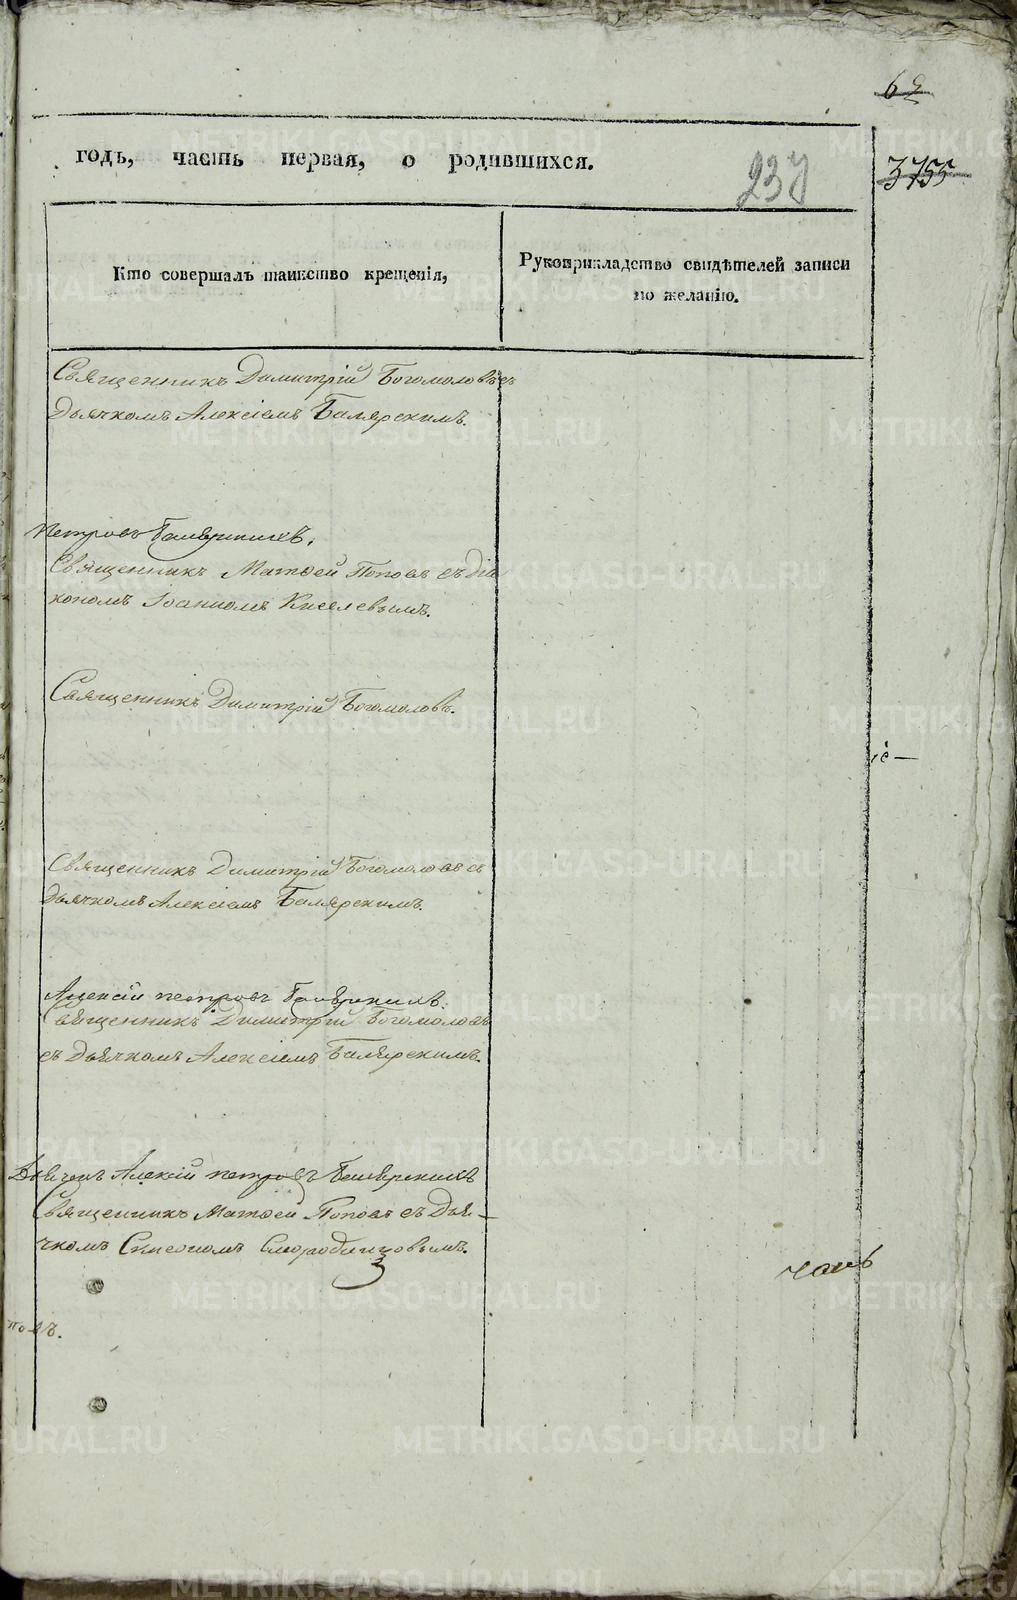 62
годъ, часть первая, о родившихся.
237
3755
Кто совершалъ таинство крещенія,
Рукоприкладство свидѣтелей записи
по желанію.
Священникъ Димитрій Богомоловъ съ
дьячкомъ Алексіемъ
Петровъ
Священникъ Матѳей Поповъ съ діа
кономъ Іоанномъ Киселевымъ.
Священникъ Димитрій Богомоловъ.
Священникъ Димитрій Богомоловъ съ
дьячкомъ Алексіемъ
Алексій Петровъ
Священникъ Димитрій Богомоловъ
съ Дьячкомъ Алексіемъ
Дьячекъ Алексій Петровъ
Священникъ Матѳей Поповъ съ Дья-
чкомъ Симеономъ Смородинцовымъ.
3
часть
METRIKI.GASO-URAL.RU